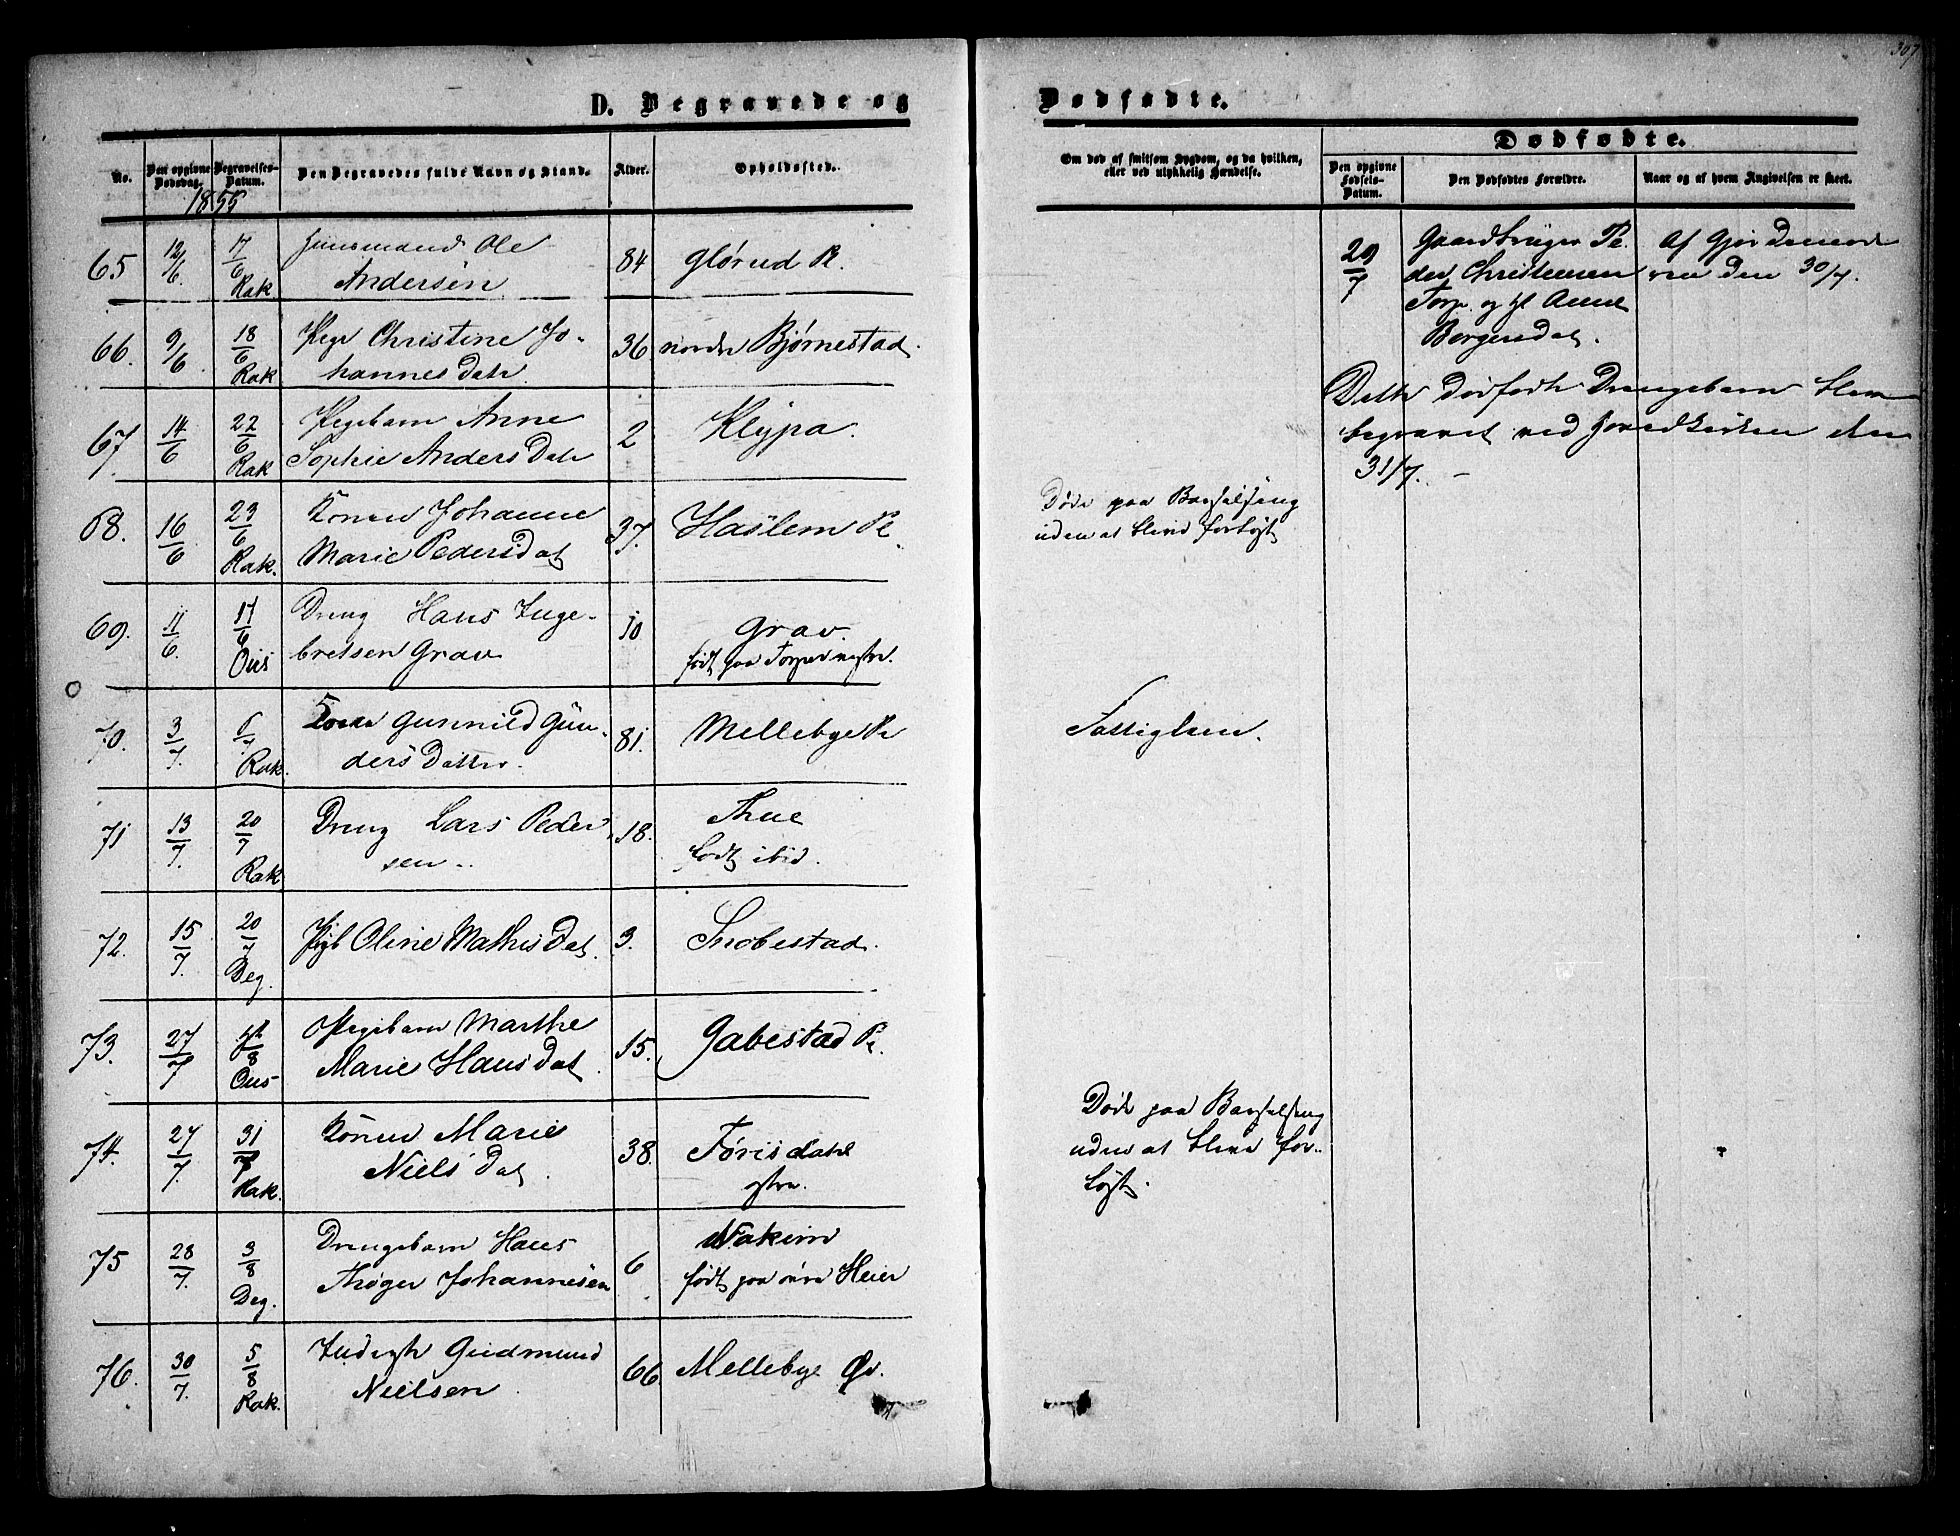 307
D. Begravede og
No.
Den opgivne Dødsdag.
Begravelses-Datum.
Den Begravedes fulde Navn og Stand.
Alder.
Opholdssted.
1855
65 12/6. 17/6 Rak Huusmand Ole Andersen 84 Glørud P.
66. 9/6 18/6 Rak Pige Christine Johannes Datr 36 nordre Bjørnestad.
67. 14/6 22/6 Rak Pigebarn Anne Sophie Anders Datr 2 Klypa.
68. 16/6 23/6 Rak. Konen Johanne Marie Pedersdat 37. Haslem Pl.
69. 11/6. 17/6 Ons Dreng Hans Ingebretsen Grav 10 Grav. født paa Torper vestre.
70. 3/7. 6/7 Rak. Gunnild Gunders Datter. 81. Mellebye Pl
71 13/7. 20/7 Rak Dreng Lars Pedersen. 18. Thue født ibid.
72. 15/7. 20/7 Deg. Pigb Oline Mathisdat. 3. Snobestad.
73. 27/7 /8 Ons Pigebarn Marthe Marie Hansdat. 15. Gabestad Pl.
74. 27/7. 31/7 Rak. Konen Marie Niels Dat. 38. Førisdahl østre.
75 28/7. 3/8 Deg. Drengebarn Hans Thøger Johannesen 6. Nakim født paa øvre Heier
76. 30/7. 5/8 Rak. Inderste Gudmund Nielsen. 66. Mellebye Øv.
Dødfødte.
Om død af smitsom Sygdom, og da hvilken,
eller ved ulykkelig Hændelse.
Dødfødte.
Den opgivne Fødsels-Datum.
Den Dødfødtes Forældre.
Naar og af hvem Angivelsen er skeet.
29/7 Gaardbruger Peder Christensen Torp. og H. Anne Borgersdat. Af Gjordemoderen den 30/7.
Dette dødfødte Drengebarn blev
begravet ved Hovedkirken den
31/7. –
Døde paa Barselseng
uden at blive forløst
Fattiglem.
Døde paa Barselseng
uden at blive for-
løst.